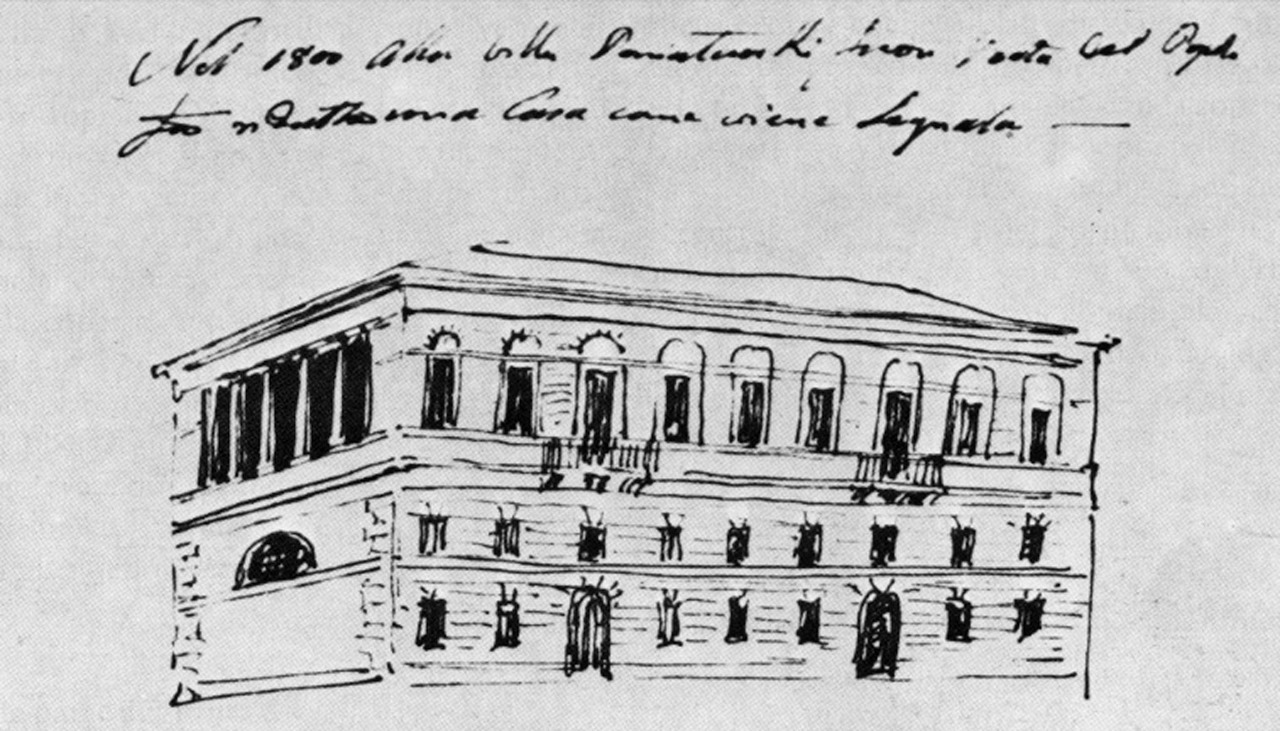 Nel 1800 alla villa Poniatowski fuori porta del Popolo
fu ridotta una Casa come viene segnata —